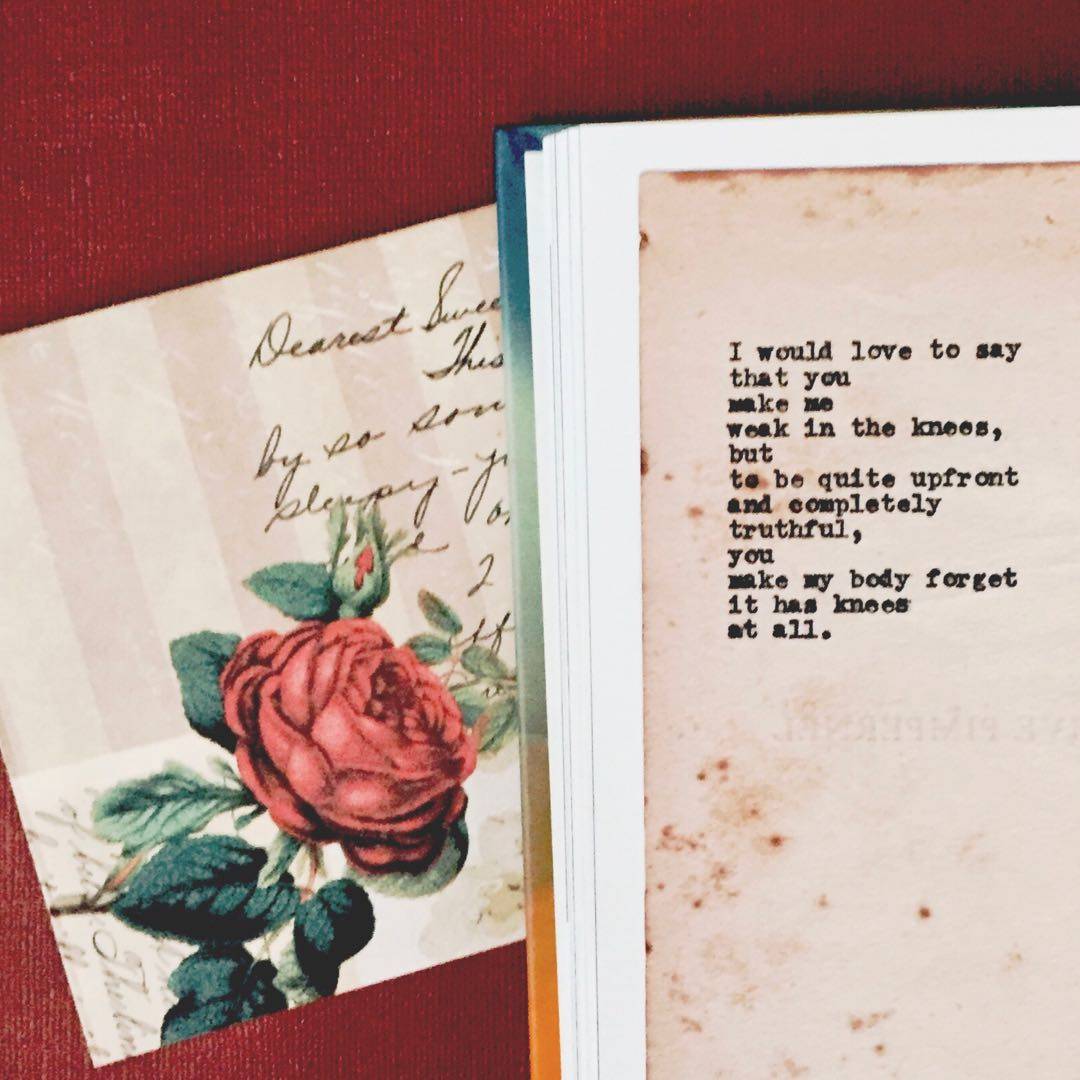 Dearest Swee
This
by so som
sleepy-
2
I would love to say
that you
make me
weak in the knees,
but
to be quite upfront
and completely
truthful,
you
make my body forget
it has knees
at all.
VE PIMPERNEL